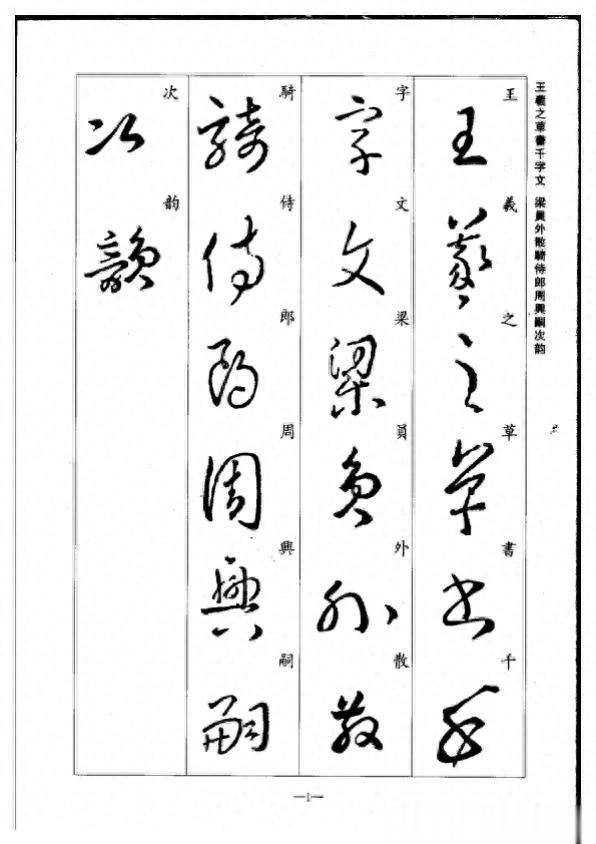 王羲之草書千字文 梁員外散騎侍郎周興嗣次韵
王羲之草書千
字文梁員外散
騎侍郎周興嗣
次韵
—1—